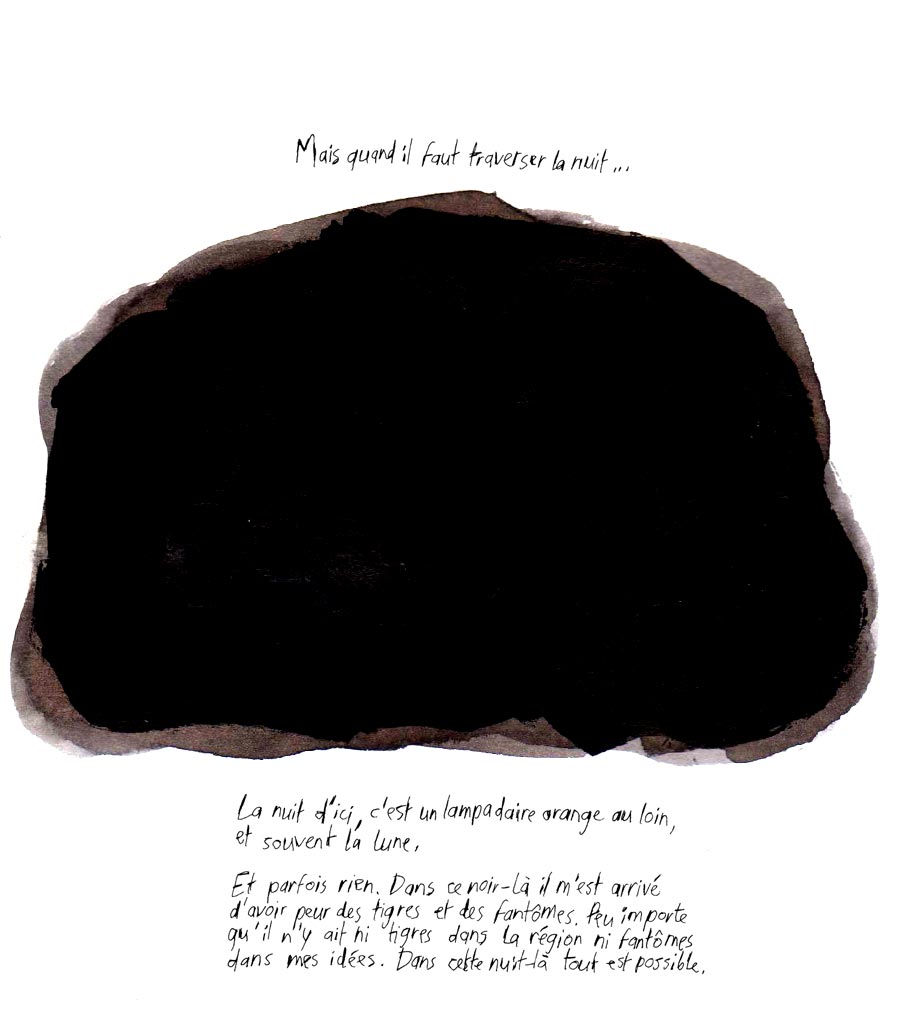 Mais quand il faut traverser la nuit...
La nuit d'ici, c'est un lampadaire orange au loin,
et souvent la lune.
Et parfois rien. Dans ce noir-là il m'est arrivé
d'avoir peur des tigres et des fantômes. Peu importe
qu'il n'y ait ni tigres dans la région ni fantômes
dans mes idées. Dans cette nuit-là tout est possible.